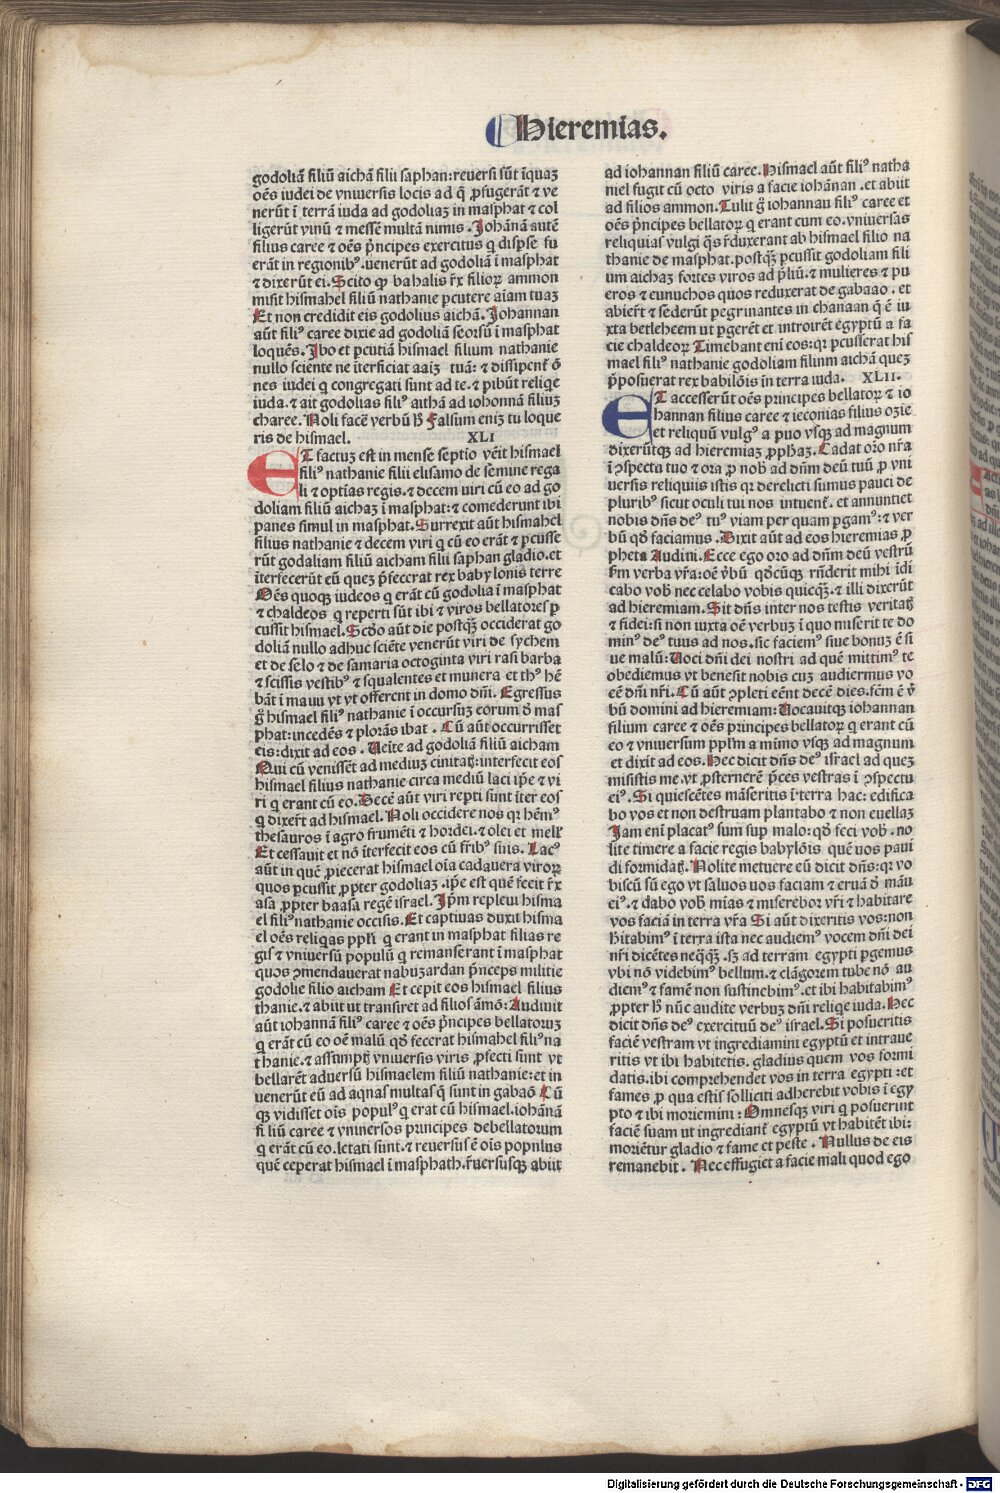 Hieremias.
godoliā filiū aichā filii saphan: reuersi sūt īquaȝ
oēs iudei de vniuersis locis ad q̄ ꝓfugerāt ⁊ ve
nerūt ī terrā iuda ad godoliaȝ in masphat ⁊ col
ligerūt vinū ⁊ messē multā nimis. Johānā autē
filius caree ⁊ oēs p̄ncipes exercitus q̄ disꝑse fu
erāt in regionibꝰ. uenerūt ad godoliā ī masphat
⁊ dixerūt ei. Scito ꝙ bahalis r̄x filioꝝ ammon
misit hismahel filiū nathanie ꝑcutere aīam tuaȝ
Et non credidit eis godolius aichā. Johannan
aūt filiꝰ caree dixie ad godoliā seorsū ī masphat
loquēs. Jbo et ꝑcutiā hismael filium nathanie
nullo sciente ne īterficiat aaīȝ tuā: ⁊ dissipent̄ ō
nes iudei q̄ congregati sunt ad te. ⁊ pibūt reliqe
iuda. ⁊ ait godolias filiꝰ aithā ad iohonnā filiuȝ
charee. Noli facē verbū h̄ Falsum eniȝ tu loque
ris de hismael. XLI
ET factuȝ est in mense septio vēit hismael
filiꝰ nathanie filii elisamo de semine rega
li ⁊ optīas regis. ⁊ decem uiri cū eo ad go
doliam filiū aichaȝ ī masphat: ⁊ comederunt ibi
panes simul in masphat. Surrexit aūt hismahel
filius nathanie ⁊ decem viri q̄ cū eo erāt ⁊ ꝑcusse
rūt godaliam filiū aicham filii saphan gladio. et
īterfecerūt eū queȝ p̄fecerat rex babylonis terre
Oēs quoqȝ iudeos q̄ erāt cū godolia ī masphat
⁊ chaldeos q̄ reperti sūt ibi ⁊ viros bellatores ꝑ
cussit hismael. Scd̄o aūt die postqȝ occiderat go
doliā nullo adhuc sciēte venerūt viri de sychem
et de selo ⁊ de samaria octoginta viri rasi barba
⁊ scissis vestibꝰ ⁊ squalentes et munera et thꝰ hē
bāt ī manu vt vt offerent in domo dn̄i. Egressus
g̊ hismael filiꝰ nathanie ī occursuȝ eorum d̄ mas
phat: incedēs ⁊ plorās ibat. Cū aūt occurrisset
eis: dixit ad eos. Ueīte ad godoliā filiū aicham
Qui cū venissēt ad mediuȝ cinitatꝭ: interfecit eos
hismael filius nathanie circa mediū laci ip̄e ⁊ vi
ri q̄ erant cū eo. Decē aūt viri repti sunt īter eos
q̄ dixer̄t ad hismael. Noli occidere nos qꝛ hēmꝰ
thesauros ī agro frumēti ⁊ hordei. ⁊ olei et mell̄
Et cessauit et nō īterfecit eos cū fr̄ibꝰ suis. Lacꝰ
aūt in quē ꝓiecerat hismael oīa cadauera viroꝝ
quos ꝑcussit ꝓpter godoliaȝ. ip̄e est quē fecit r̄x
asa ꝓpter baasa regē israel. Jp̄m repleui hisma
el filiꝰ nathanie occisis. Et captiuas duxit hisma
el oēs reliq̄as pp̄li q̄ erant in masphat filias re
gis ⁊ vniuersū populū q̄ remanserant ī masphat
quos ꝯmendauerat nabuȝardan p̄nceps militie
godolie filio aicham Et cepit eos hismael filius
thanie. ⁊ abiit ut transiret ad filios āmō: Audiuit
aūt iohannā filiꝰ caree ⁊ oēs p̄ncipes bellatoruȝ
q̄ erāt cū eo oē malū qd̄ fecerat hismahel filiꝰ na
thanie. ⁊ assumptꝭ vniuersis viris ꝓfecti sunt vt
bellarēt aduersū hismaelem filiū nathanie: et in
uenerūt eū ad aqnas multas q̄ sunt in gabaō Cū
qȝ vidisset oīs populꝰ q̄ erat cū hismael. iohānā
fi liū caree ⁊ vniuersos principes debellatorum
q̄ erāt cū eo. letati sunt. ⁊ reuersus ē oīs popnlus
quē ceperat hismael ī masphath. r̄uersusqȝ abiit
ad iohannan filiū caree. Hismael aūt filiꝰ natha
niel fugit cū octo viris a facie iohānan. et abiit
ad filios ammon. Tulit g̊ iohannau filiꝰ caree et
oēs p̄ncipes bellatoꝝ q̄ erant cum eo. vniuersas
reliquias vulgi q̄s r̄duxerant ab hismael filio na
thanie de masphat. postqȝ ꝑcussit godoliam fili
um aichaȝ fortes viros ad p̄liū. ⁊ mulieres ⁊ pu
eros ⁊ eunuchos quos reduxerat de gabaao. et
abier̄t ⁊ sederūt pegrinantes in chanaan q̄ ē iu
xta betleheem ut pgerēt et introirēt egyptū a fa
cie chaldeoꝝ Timebant eni eos: qꝛ pcusserat his
mael filiꝰ nathanie godoliam filium aichā queȝ
p̄posuerat rex babilōis in terra iuda. XLII.
ET accesserūt oēs principes bellatoꝝ ⁊ io
hannan filius caree ⁊ ieconias filius oȝie
et reliquū vulgꝰ a puo vsqȝ ad magnum
dixerūtqȝ ad hieremiaȝ ꝓph̄aȝ. Cadat oro nr̄a
ī ꝯspecta tuo ⁊ ora ꝓ nob̄ ad dn̄m deū tuū ꝓ vni
uersis reliquiis istis qꝛ derelicti sumus pauci de
pluribꝰ sicut oculi tui nos intuent̄. et annuntiet
nobis dn̄s deꝰ tuꝰ viam per quam pgamꝰ: ⁊ ver
bū qd̄ faciamus. Dixit aūt ad eos hieremias ꝓ
pheta Audini. Ecce ego oro ad dn̄m deū vestrū
h̄m verba vr̄a: oē v̄bū qd̄cūqȝ rn̄derit mihi īdi
cabo vob̄ nec celabo vobis quicqȝ. ⁊ illi dixerūt
ad hieremiam. Sit dn̄s inter nos testis veritatꝭ
⁊ fidei: si non iuxta oē verbuȝ ī quo miserit te do
minꝰ deꝰ tuus ad nos. sic faciemꝰ siue bonuȝ ē si
ue malū: Uoci dn̄i dei nostri ad quē mittimꝰ te
obediemus vt benesit nobis cuȝ audiermus vo
cē dn̄i nr̄i. Cū aūt ꝯpleti eēnt decē dies. fcm̄ ē v̄
bū domini ad hieremiam: Uocauitqȝ iohannan
filium caree ⁊ oēs principes bellatoꝝ q̄ erant cū
eo ⁊ vniuersum pp̄lm a mīmo vsqȝ ad magnum
et dixit ad eos. Hec dicit dn̄s deꝰ israel ad queȝ
misistis me. vt ꝓsternerē p̄ces vestras ī ꝯspectu
eiꝰ. Si quiescētes māseritis ī terra hac: edifica
bo vos et non destruam plantabo ⁊ non euellaȝ
Jam enī placatꝰ sum sup malo: qd̄ feci vob̄. no
lite timere a facie regis babylōis quē uos paui
di formidatꝭ. Nolite metuere eū dicit dn̄s: qꝛ vo
biscū sū ego vt saluos uos faciam ⁊ eruā d̄ māu
eiꝰ. ⁊ dabo vob̄ mīas ⁊ miserebor vr̄i ⁊ habitare
vos faciā in terra vr̄a Si aūt dixeritis vos: non
h̄itabimꝰ ī terra ista nec audiemꝰ vocem dn̄i dei
nr̄i dicētes neq̄qȝ. sȝ ad terram egypti pgemus
vbi nō videbimꝰ bellum. ⁊ clāgorem tube nō au
diemꝰ ⁊ famē non sustinebimꝰ. et ibi habitabimꝰ
ꝓpter h̄ nūc audite verbuȝ dn̄i reliqe iuda. Hec
dicit dn̄s deꝰ exercituū deꝰ israel. Si posueritis
faciē vestram vt ingrediamini egyptū et intraue
ritis vt ibi habitetis. gladius quem vos formi
datis. ibi comprehendet vos in terra egypti: et
fames ꝓ qua estis solliciti adherebit vobis ī egy
pto ⁊ ibi moriemini: Omnesqȝ viri q̄ posuerint
faciē suam ut ingrediant̄ egyptū vt habitēt ibi:
moriētur gladio ⁊ fame et peste. Nullus de eis
remanebit. Nec effugiet a facie mali quod ego
Digitalisierung gefördert durch die Deutsche Forschungsgemeinschaft - DFG